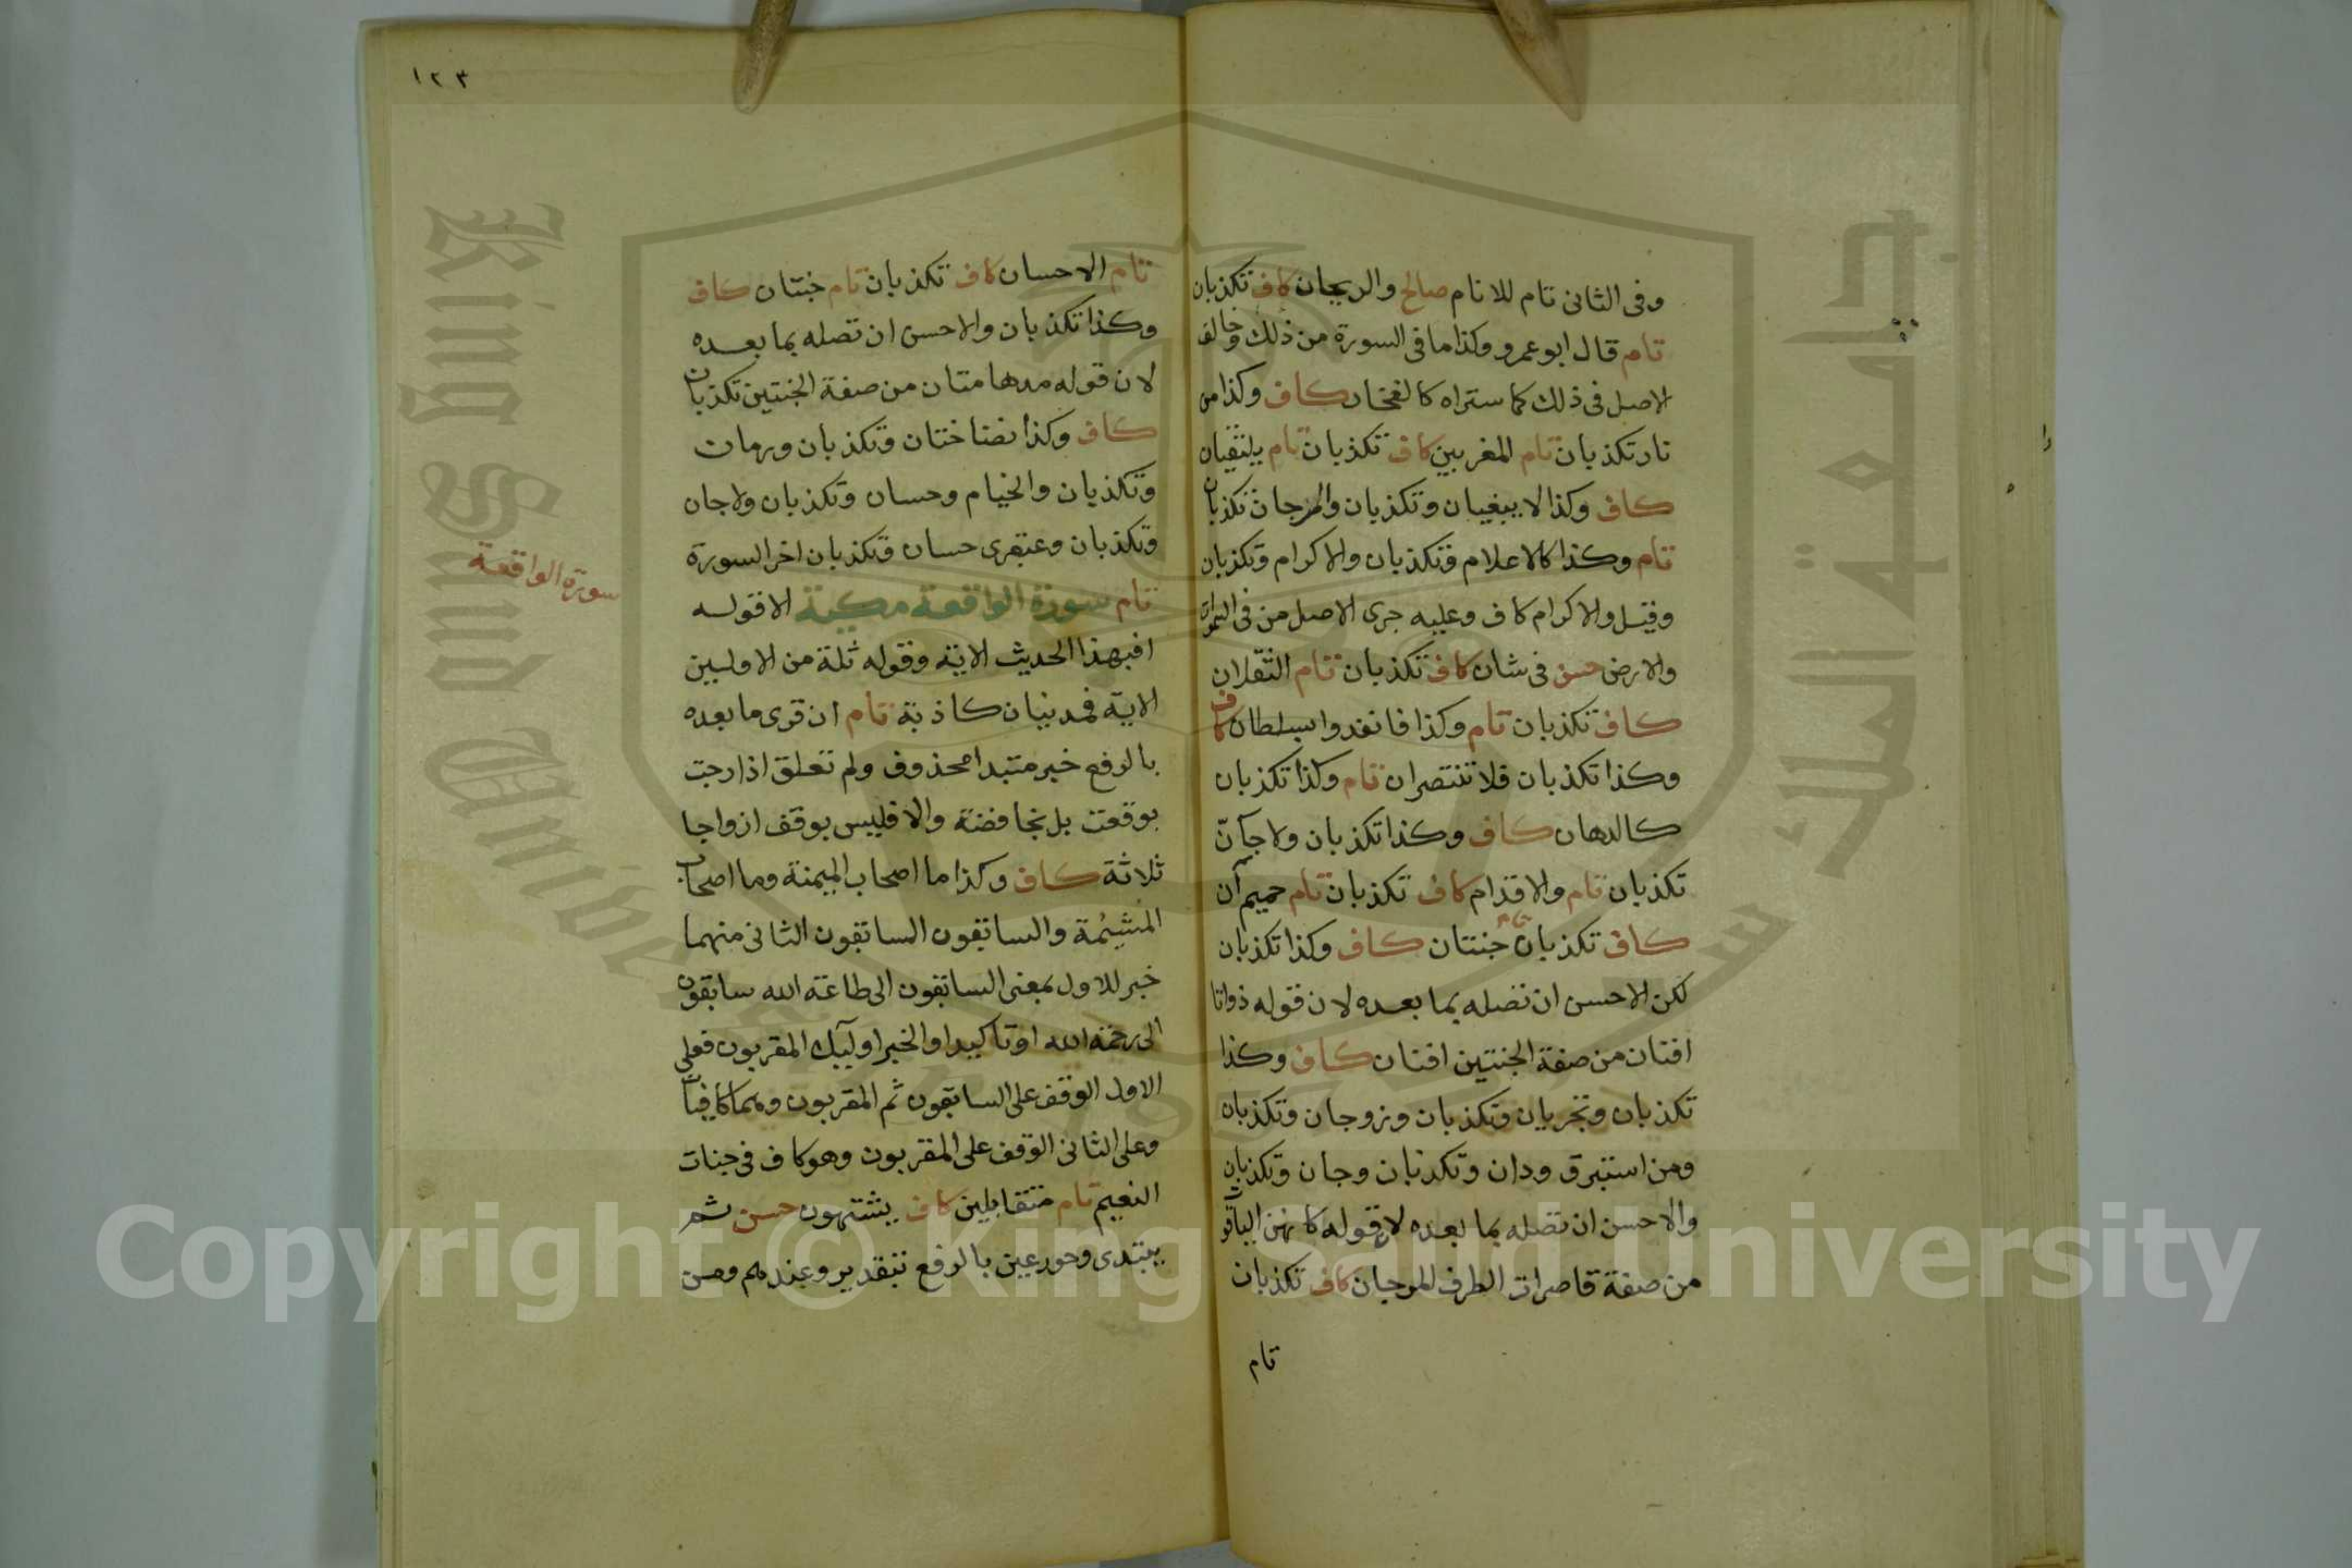 وفى الثانى تام للانام صالح والريحان كاف تكذبان
تام قال ابو عمرو وكذا ما فى السورة من ذلك وخالف
الاصل فى ذلك كما ستراه كالفخار كاف وكذا من
نار تكذبان تام المغربين كاف تكذبان تام يلتقيان
كاف وكذا لا يبغيان وتكذبان والمرجان تكذبان
تام وكذا كالاعلام وتكذبان والاكرام وتكذبان
وقيل والاكرام كاف وعليه جرى الاصل من فى السموات
والارض حسن فى شان كاف تكذبان تام الثقلان
كاف تكذبان تام وكذا فانفذوا بسلطان كاف
وكذا تكذبان فلا تنتصران تام وكذا تكذبان
كالدهان كاف وكذا تكذبان ولا جآن
تكذبان تام والاقدام كاف تكذبان تام حميم آن
كاف تكذبان تام جنتان كاف وكذا تكذبان
لكن الاحسن ان تصله بما بعده لان قوله ذواتا
افنان من صفة الجنتين افنان كاف وكذا
تكذبان وتجريان وتكذبان وزوجان وتكذبان
ومن استبرق ودان وتكذبان وجان وتكذبان
والاحسن ان تصله بما بعده لان قوله كانهن الياقوت
من صفة قاصرات الطرف المرجان كاف تكذبان
تام
١٢٣
تام الاحسان كاف تكذبان تام جنتان كاف
وكذا تكذبان والاحسن ان تصله بما بعده
لان قوله مدهامتان من صفة الجنتين تكذبان
كاف وكذا نضاختان وتكذبان ورمان
وتكذبان والخيام وحسان وتكذبان ولا جان
وتكذبان وعبقرى حسان وتكذبان اخر السورة
تام سورة الواقعة مكية الا قوله
سورة الواقعة
افبهذا الحديث الاية وقوله ثلة من الاولين
الاية فمدنيتان كاذبة تام ان قرى ما بعده
بالرفع خبر مبتدا محذوف ولم تعلق اذا رجت
بوقعت بل بخافضة والا فليس بوقف ازواجا
ثلاثة كاف وكذا ما اصحاب الميمنة وما اصحاب
المشئمة والسابقون السابقون الثانى منهما
خبر للاول بمعنى السابقون الى طاعة الله سابقون
الى رحمة الله او تاكيد او الخبر اوليك المقربون فعلى
الاول الوقف على السابقون ثم المقربون وهما كافيان
وعلى الثانى الوقف على المقربون وهو كاف فى جنات
النعيم تام متقابلين كاف يشتهون حسن ثم
يبتدى وحور عين بالرفع بتقدير وعندهم ومن
King Saud University
جامعة الملك سعود
Copyright © King Saud University